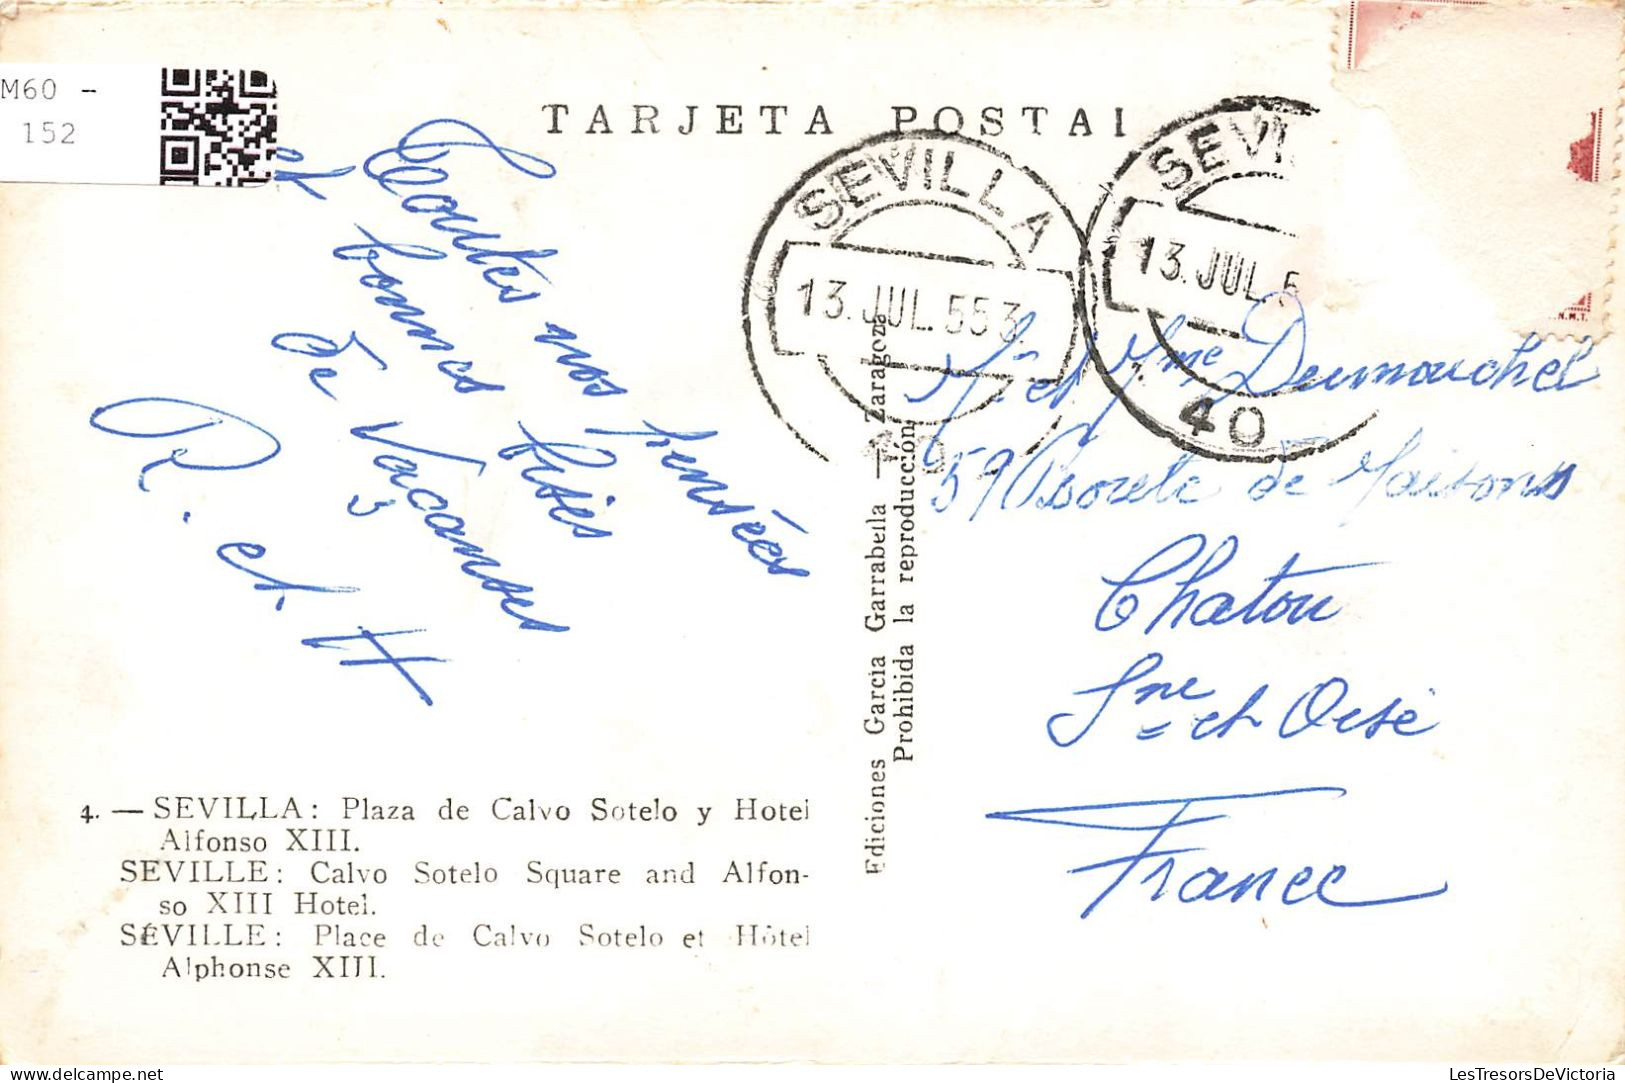 M60 -
152
TARJETA POSTAL
SEVILLA
13. JUL. 55 3
SEVI
13. JUL. 5
40
N.M.T.
Toutes nos pensées
et bonnes bises
de Vacances
R. et H
Mr et Mme Dumouchel
59 de Maisons
Chatou
Sne et Oise
France
Ediciones García Garrabella — Zaragoza
Prohibida la reproducción
4. — SEVILLA: Plaza de Calvo Sotelo y Hotel
Alfonso XIII.
SEVILLE: Calvo Sotelo Square and Alfon-
so XIII Hotel.
SÉVILLE: Place de Calvo Sotelo et Hôtel
Alphonse XIII.
delcampe.net
LesTresorsDeVictoria